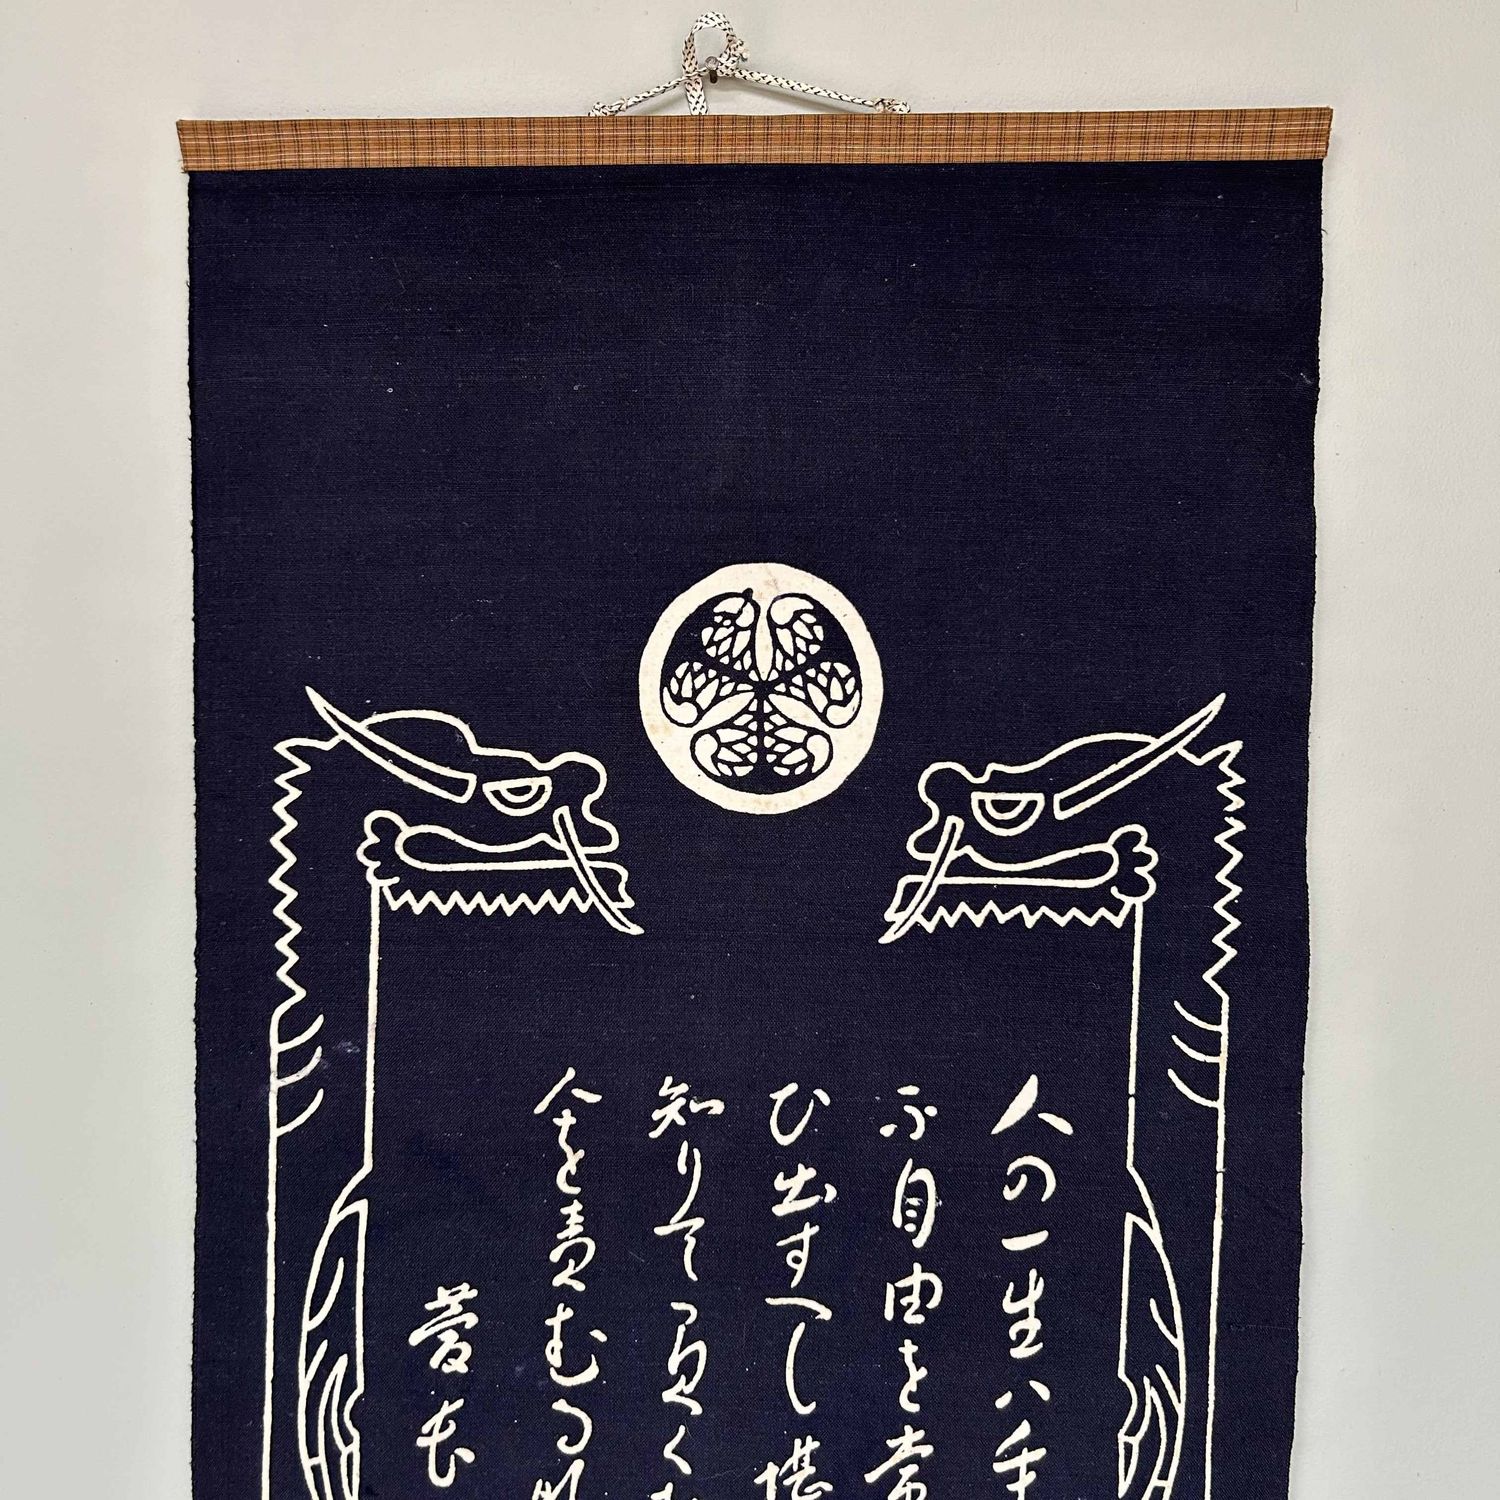 人の一生ハ重
不自由を常
ひ出すへし堪
知りて負く
人を責むる
慶長